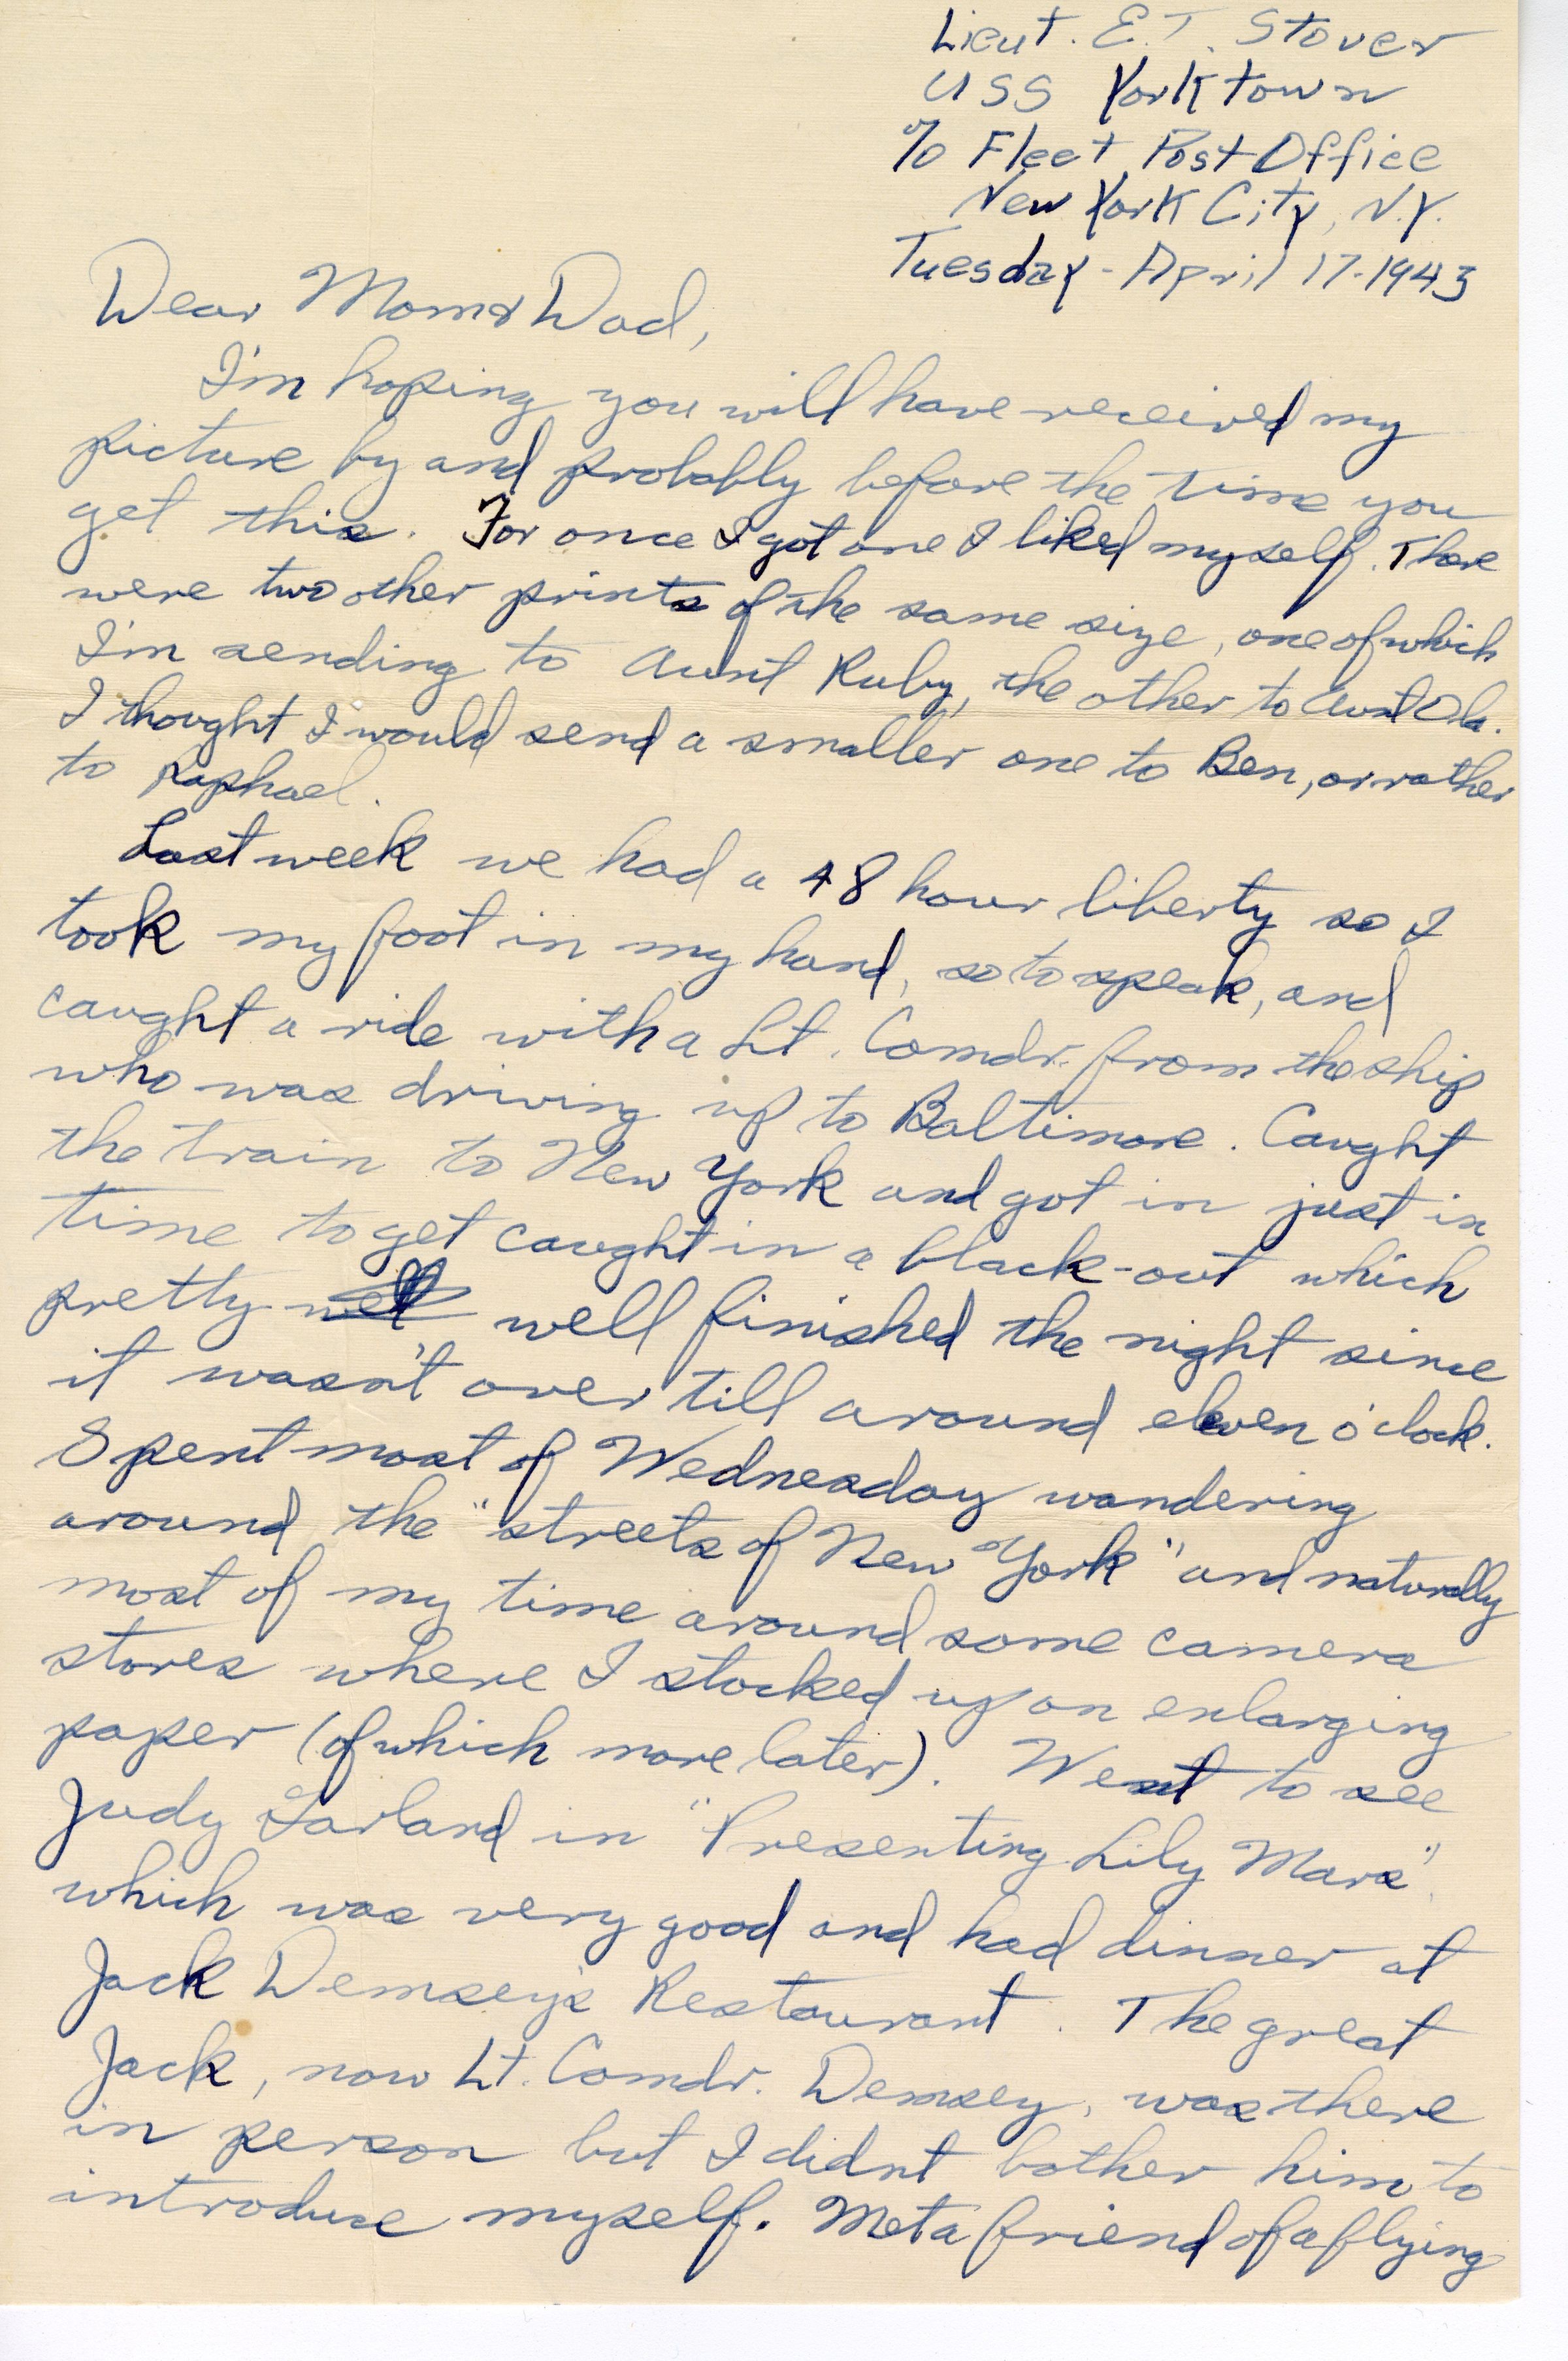 Lieut. E.T. Stover
USS Yorktown
℅ Fleet Post Office
New York City, N.Y.
Tuesday - April 17-1943
Dear Mom & Dad,
I'm hoping you will have received my
picture by and probably before the time you
get this. For once I got one I liked myself. There
were two other prints of the same size, one of which
I'm sending to Aunt Ruby, the other to Aunt Ola.
I thought I would send a smaller one to Ben, or rather
to Raphael.
Last week we had a 48 hour liberty so I
took my foot in my hand, so to speak, and
caught a ride with a Lt. Comdr. from the ship
who was driving up to Baltimore. Caught
the train to New York and got in just in
time to get caught in a black-out which
pretty well finished the night since
it wasn't over till around eleven o'clock.
Spent most of Wednesday wandering
around the "streets of New York" and naturally
most of my time around some camera
stores where I stocked up on enlarging
paper (of which more later). Went to see
Judy Garland in "Presenting Lily Mars",
which was very good and had dinner at
Jack Demsey's Restaurant. The great
Jack, now Lt. Comdr. Demsey, was there
in person but I didnt bother him to
introduce myself. Met a friend of a flying